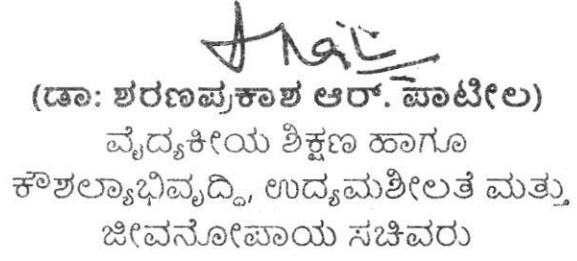 (ಡಾ: ಶರಣಪ್ರಕಾಶ ಆರ್. ಪಾಟೀಲ)
ವೈದ್ಯಕೀಯ ಶಿಕ್ಷಣ ಹಾಗೂ
ಕೌಶಲ್ಯಾಭಿವೃದ್ದಿ, ಉದ್ಯಮಶೀಲತೆ ಮತ್ತು
ಜೀವನೋಪಾಯ ಸಚಿವರು